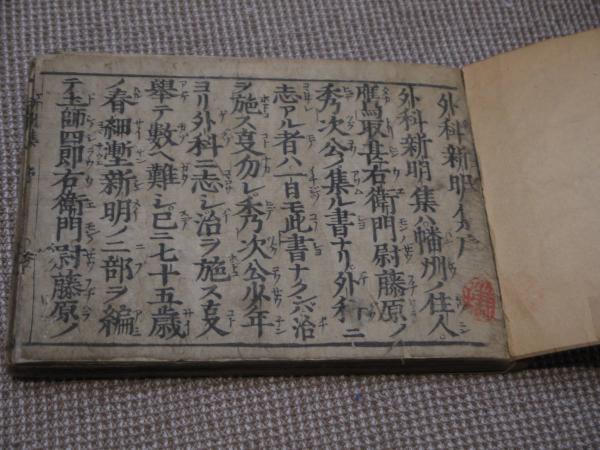 外科新明集
外科新明集ハ播州ノ住人
鷹取甚右衛門尉藤原ノ
秀次公ノ集ル書ナリ外科ニ
志アル者ハ一日モ此書ナク〆治
ヲ施ス支勿レ秀次公少年
ヨリ外科ニ志シ治ヲ施ス支
挙テ数ヘ難シ已ニ七十五歳
ノ春細塹新明ノ二部ヲ編
テ土師四郎右衛門尉藤原ノ